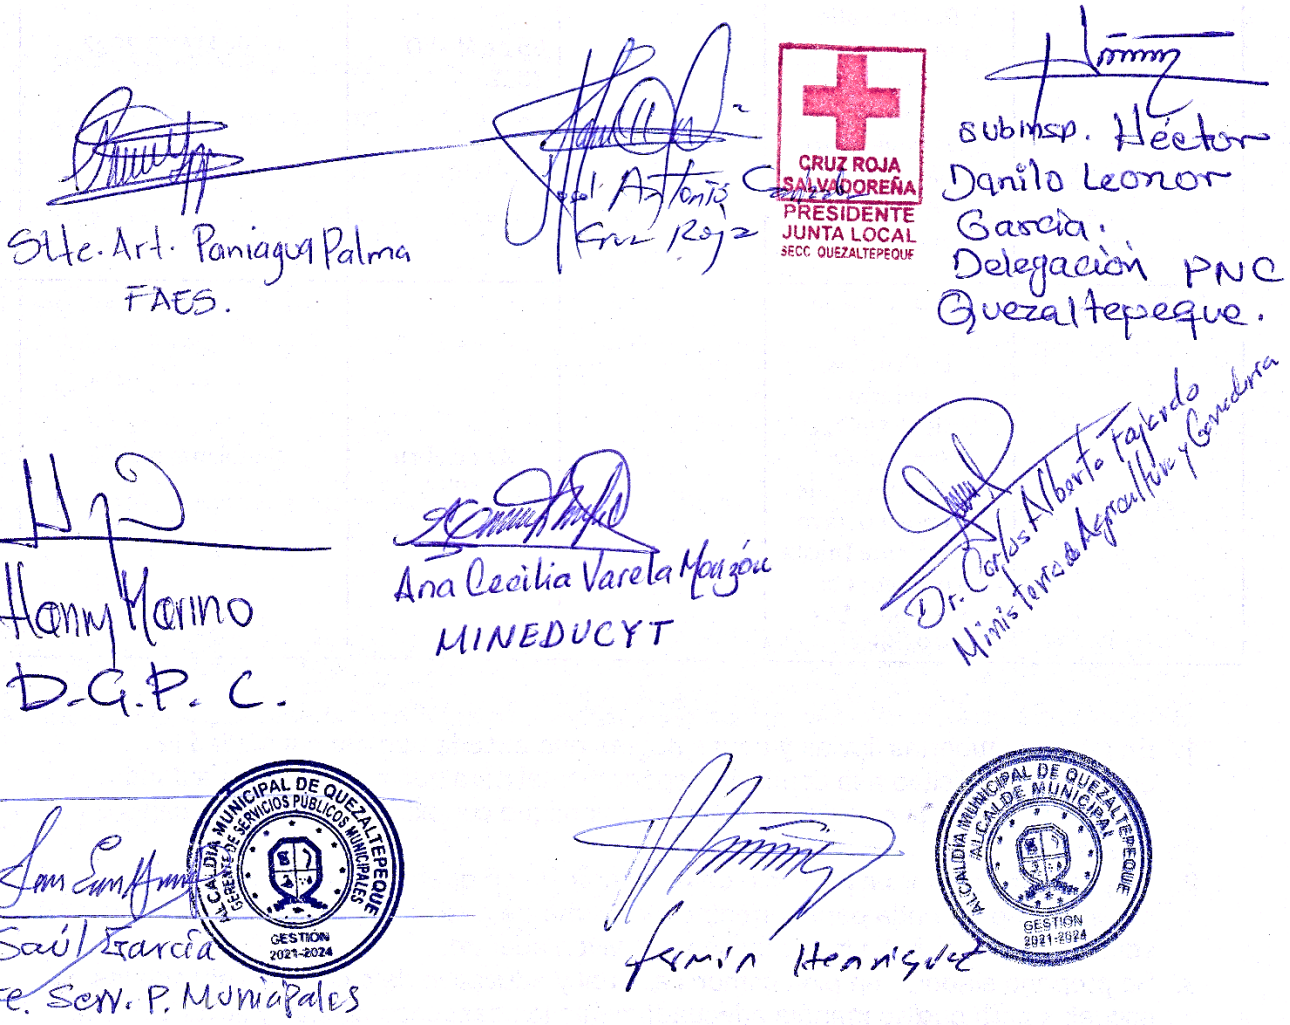 Stte. Art. Paniagua Palma
FAES.
José Antonio
Cruz Roja
CRUZ ROJA
SALVADOREÑA
PRESIDENTE
JUNTA LOCAL
SECC QUEZALTEPEQUE
Subinsp. Héctor
Danilo Leonor
García.
Delegación PNC
Quezaltepeque.
Hanny Marino
D.G.P.C.
Ana Cecilia Varela Monzón
MINEDUCYT
Dr. Carlos Alberto Fajardo
Ministerio de Agricultura y Ganadería
Saúl García
e. Serv. P. Municipales
ALCALDIA MUNICIPAL DE QUEZALTEPEQUE
GERENTE DE SERVICIOS PÚBLICOS MUNICIPALES
GESTIÓN
2021-2024
fermin Henriquez
ALCALDIA MUNICIPAL DE QUEZALTEPEQUE
ALCALDE MUNICIPAL
GESTIÓN
2021-2024